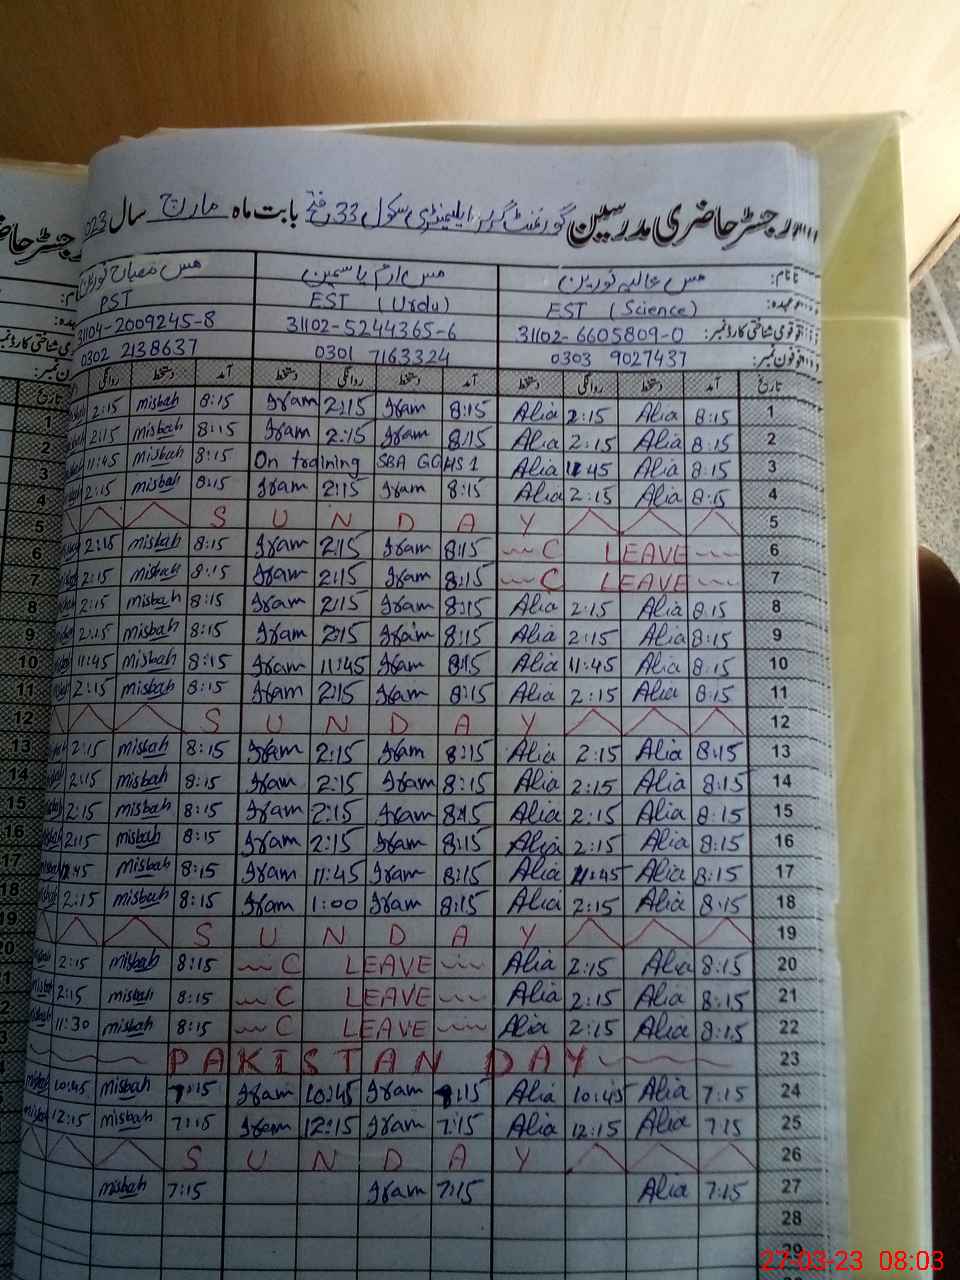 رجسٹر حاضری مدرسین گورنمنٹ گرلز ایلیمنٹری سکول 33 فتح بابت ماہ مارچ سال 2023
نام: مس عالیہ نورین مس ارم یاسمین مس مصباح نورین
عہدہ:
PST EST (Urdu) EST (Science)
قومی شناختی کارڈ نمبر:
31104-2009245-8 31102-5244365-6 31102-6605809-0
فون نمبر:
0302 2138637 0301 7163324 0303 9027437
تاریخ آمد دستخط روانگی دستخط آمد دستخط روانگی دستخط آمد دستخط روانگی
2:15 misbah 8:15 Iram 2:15 Iram 8:15 Alia 2:15 Alia 8:15 1
2:15 misbah 8:15 Iram 2:15 Iram 8:15 Alia 2:15 Alia 8:15 2
11:45 misbah 8:15 On training SBA GGHS 1 Alia 11:45 Alia 8:15 3
2:15 misbah 8:15 Iram 2:15 Iram 8:15 Alia 2:15 Alia 8:15 4
S U N D A Y 5
2:15 misbah 8:15 Iram 2:15 Iram 8:15 C LEAVE 6
2:15 misbah 8:15 Iram 2:15 Iram 8:15 C LEAVE 7
2:15 misbah 8:15 Iram 2:15 Iram 8:15 Alia 2:15 Alia 8:15 8
2:15 misbah 8:15 Iram 2:15 Iram 8:15 Alia 2:15 Alia 8:15 9
11:45 misbah 8:15 Iram 11:45 Iram 8:15 Alia 11:45 Alia 8:15 10
2:15 misbah 8:15 Iram 2:15 Iram 8:15 Alia 2:15 Alia 8:15 11
S U N D A Y 12
2:15 misbah 8:15 Iram 2:15 Iram 8:15 Alia 2:15 Alia 8:15 13
2:15 misbah 8:15 Iram 2:15 Iram 8:15 Alia 2:15 Alia 8:15 14
2:15 misbah 8:15 Iram 2:15 Iram 8:15 Alia 2:15 Alia 8:15 15
2:15 misbah 8:15 Iram 2:15 Iram 8:15 Alia 2:15 Alia 8:15 16
11:45 misbah 8:15 Iram 11:45 Iram 8:15 Alia 11:45 Alia 8:15 17
2:15 misbah 8:15 Iram 1:00 Iram 8:15 Alia 2:15 Alia 8:15 18
S U N D A Y 19
2:15 misbah 8:15 C LEAVE Alia 2:15 Alia 8:15 20
2:15 misbah 8:15 C LEAVE Alia 2:15 Alia 8:15 21
11:30 misbah 8:15 C LEAVE Alia 2:15 Alia 8:15 22
PAKISTAN DAY 23
10:45 misbah 7:15 Iram 10:45 Iram 7:15 Alia 10:45 Alia 7:15 24
12:15 misbah 7:15 Iram 12:15 Iram 7:15 Alia 12:15 Alia 7:15 25
S U N D A Y 26
misbah 7:15 Iram 7:15 Alia 7:15 27
28
29
27-03-23 08:03